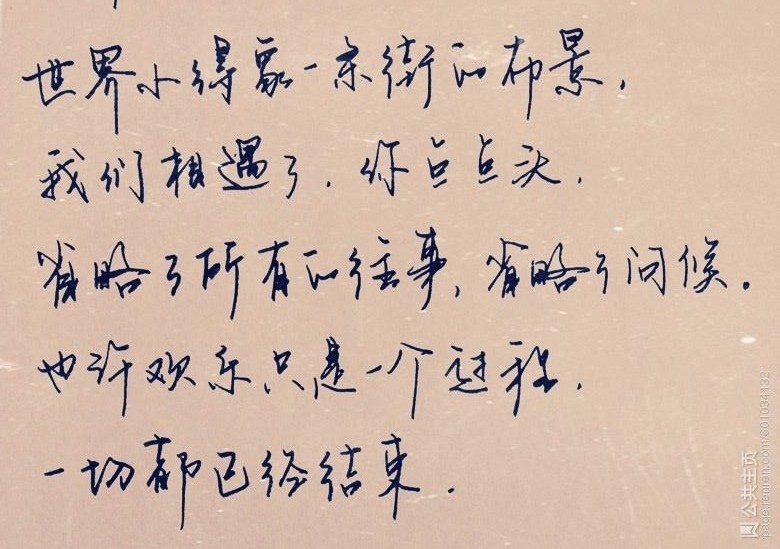 世界小得象一条街的布景,
我们相遇了,你点点头,
省略了所有的往事,省略了问候。
也许欢乐只是一个过程,
一切都已经结束.
公共主页
page.renren.com/601034132